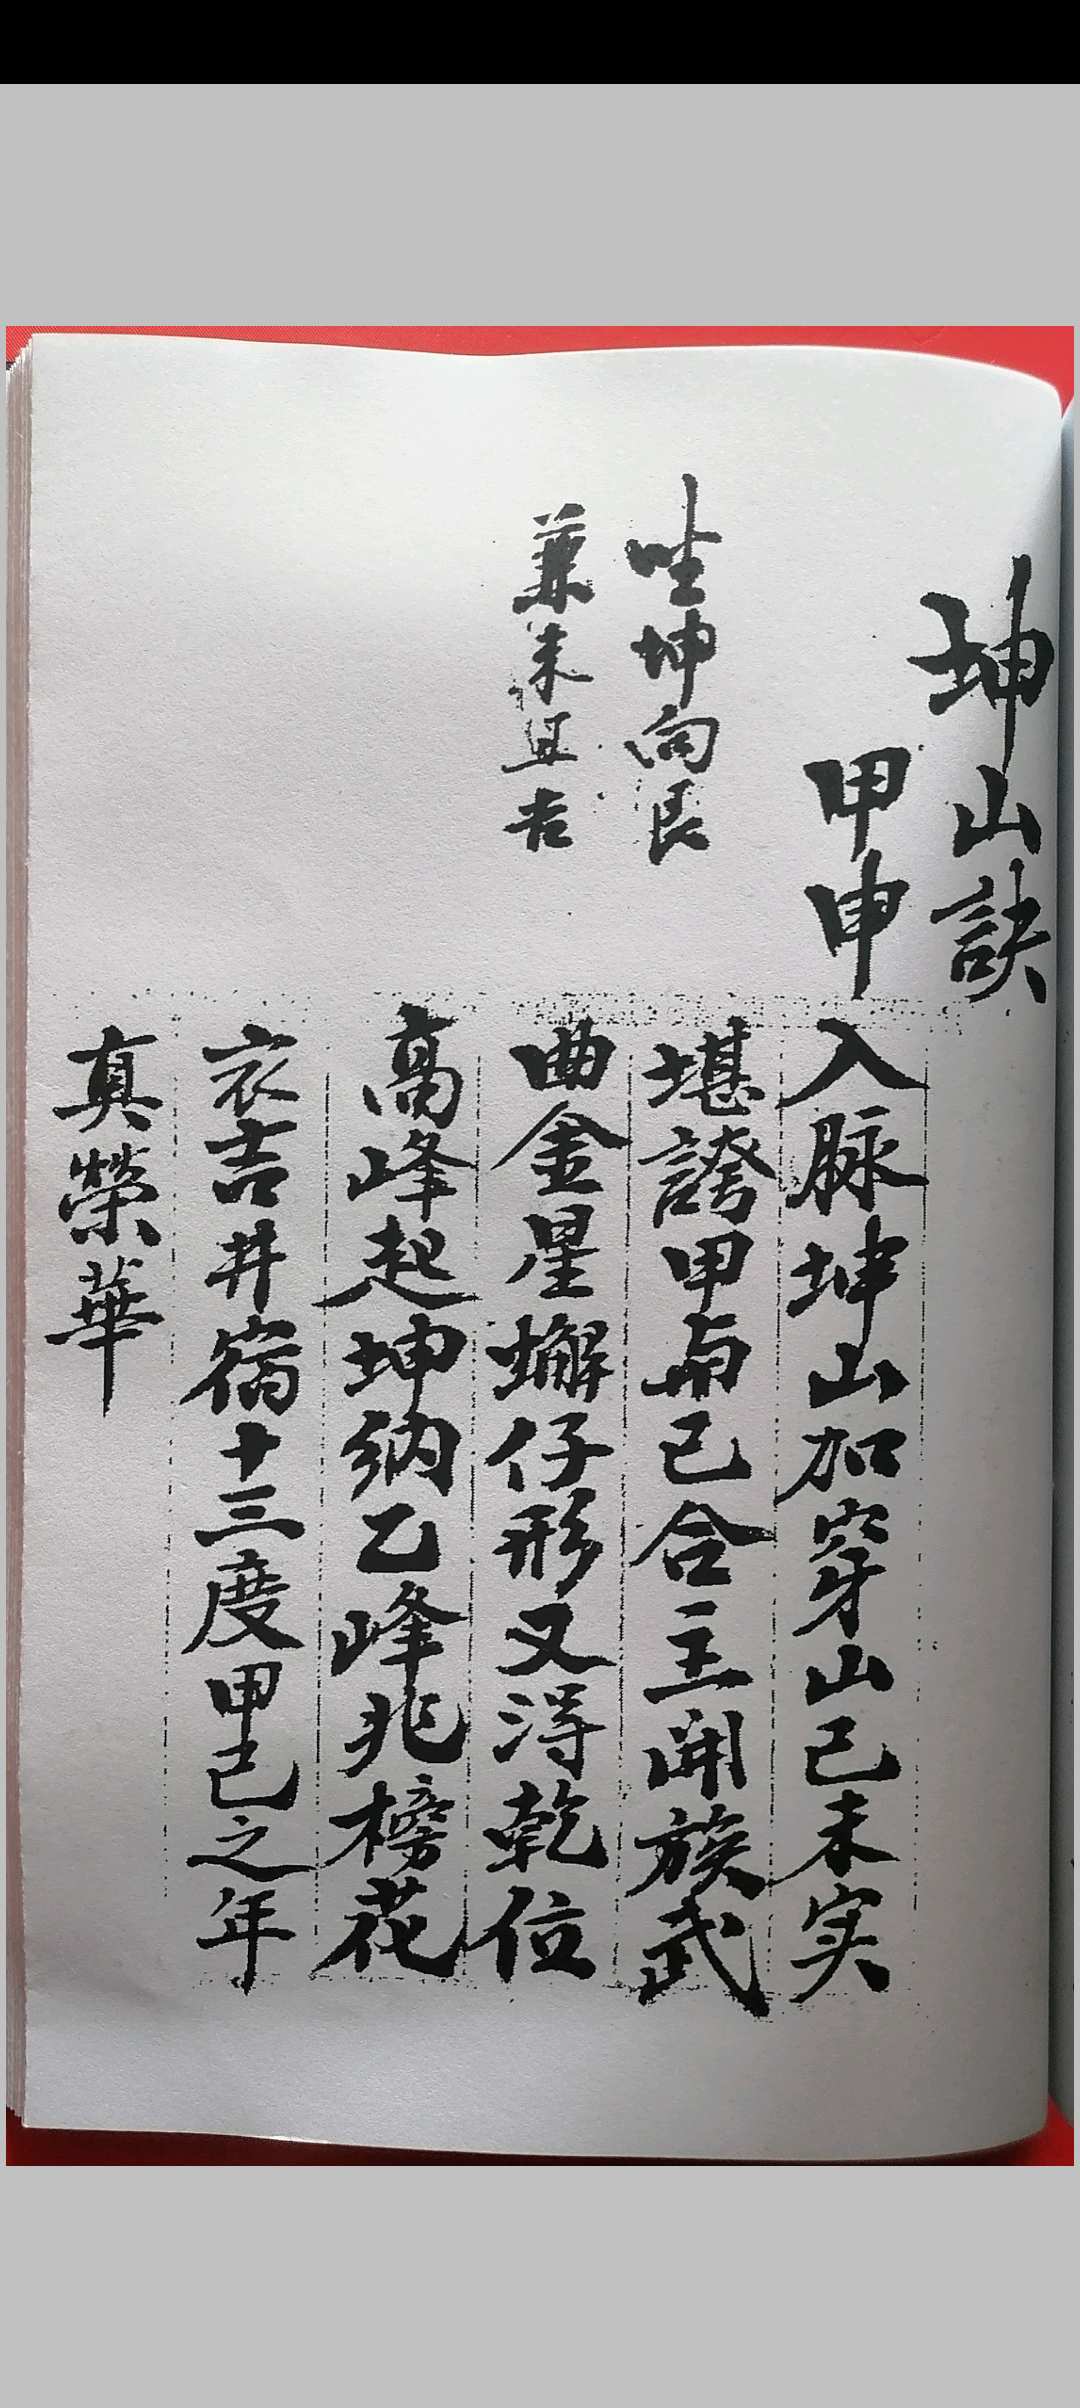 坤山訣
甲申
坐坤向艮
兼未丑吉
入脉坤山加穿山己未实
堪誇甲与己合主開族武
曲金星蠏仔形又淂乾位
高峰起坤纳乙峰兆榜花
衣吉井宿十三度甲己之年
真榮華